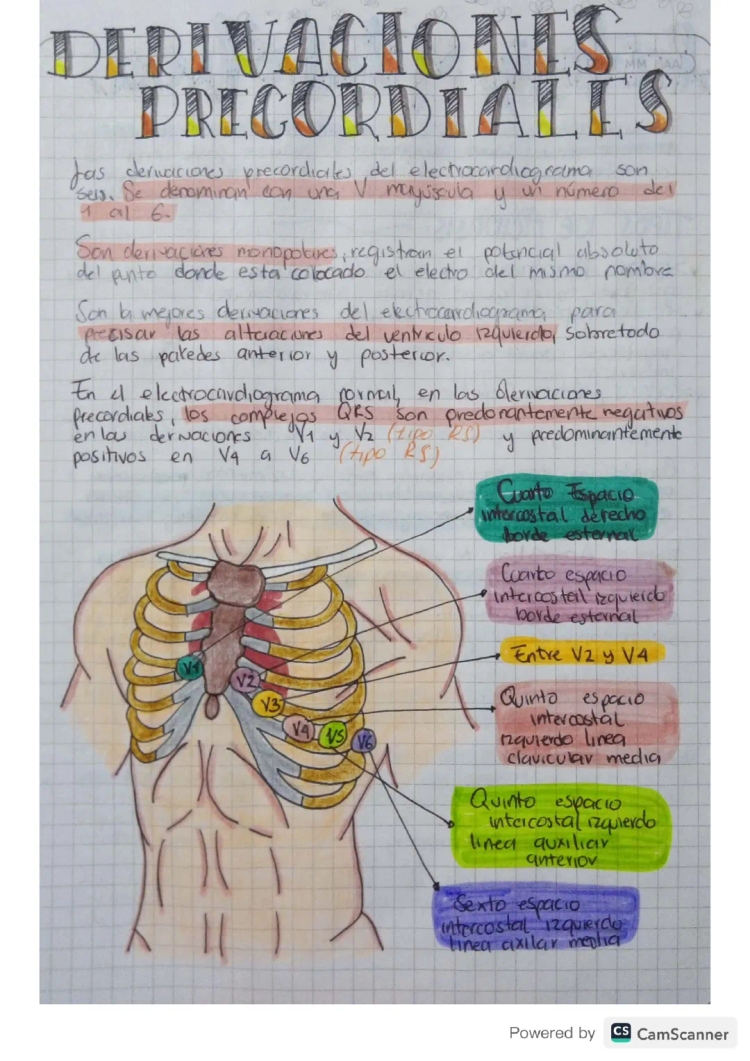 DERIVACIONES
PRECORDIALES
Las derivaciones precordiales, del electrocardiograma son
seis. Se denominan con una V mayúscula y un número del
1 al 6.
Son derivaciones monopolares, registran el potencial absoluto
del punto donde esta colocado el electro del mismo nombre
Son la mejores derivaciones del electrocardiograma para
precisar las alteraciones del ventriculo izquierdo, sobretodo
de las paredes anterior y posterior.
En el electrocardiograma normal, en las derivaciones
precordiales, los complejos QRS son predonantemente negativos
en las derivaciones V1 y V2 (tipo RS) y predominantemente
positivos en V4 a V6 (tipo RS)
Cuarto Espacio
intercostal derecho
borde esternal
Cuarto espacio
intercostal izquierdo
borde esternal
Entre V2 y V4
Quinto espacio
intercostal
izquierdo linea
clavicular media
Quinto espacio
intercostal izquierdo
linea auxiliar
anterior
Sexto espacio
intercostal izquierdo
linea axilar media
V1
V2
V3
V4
V5
V6
Powered by CS CamScanner